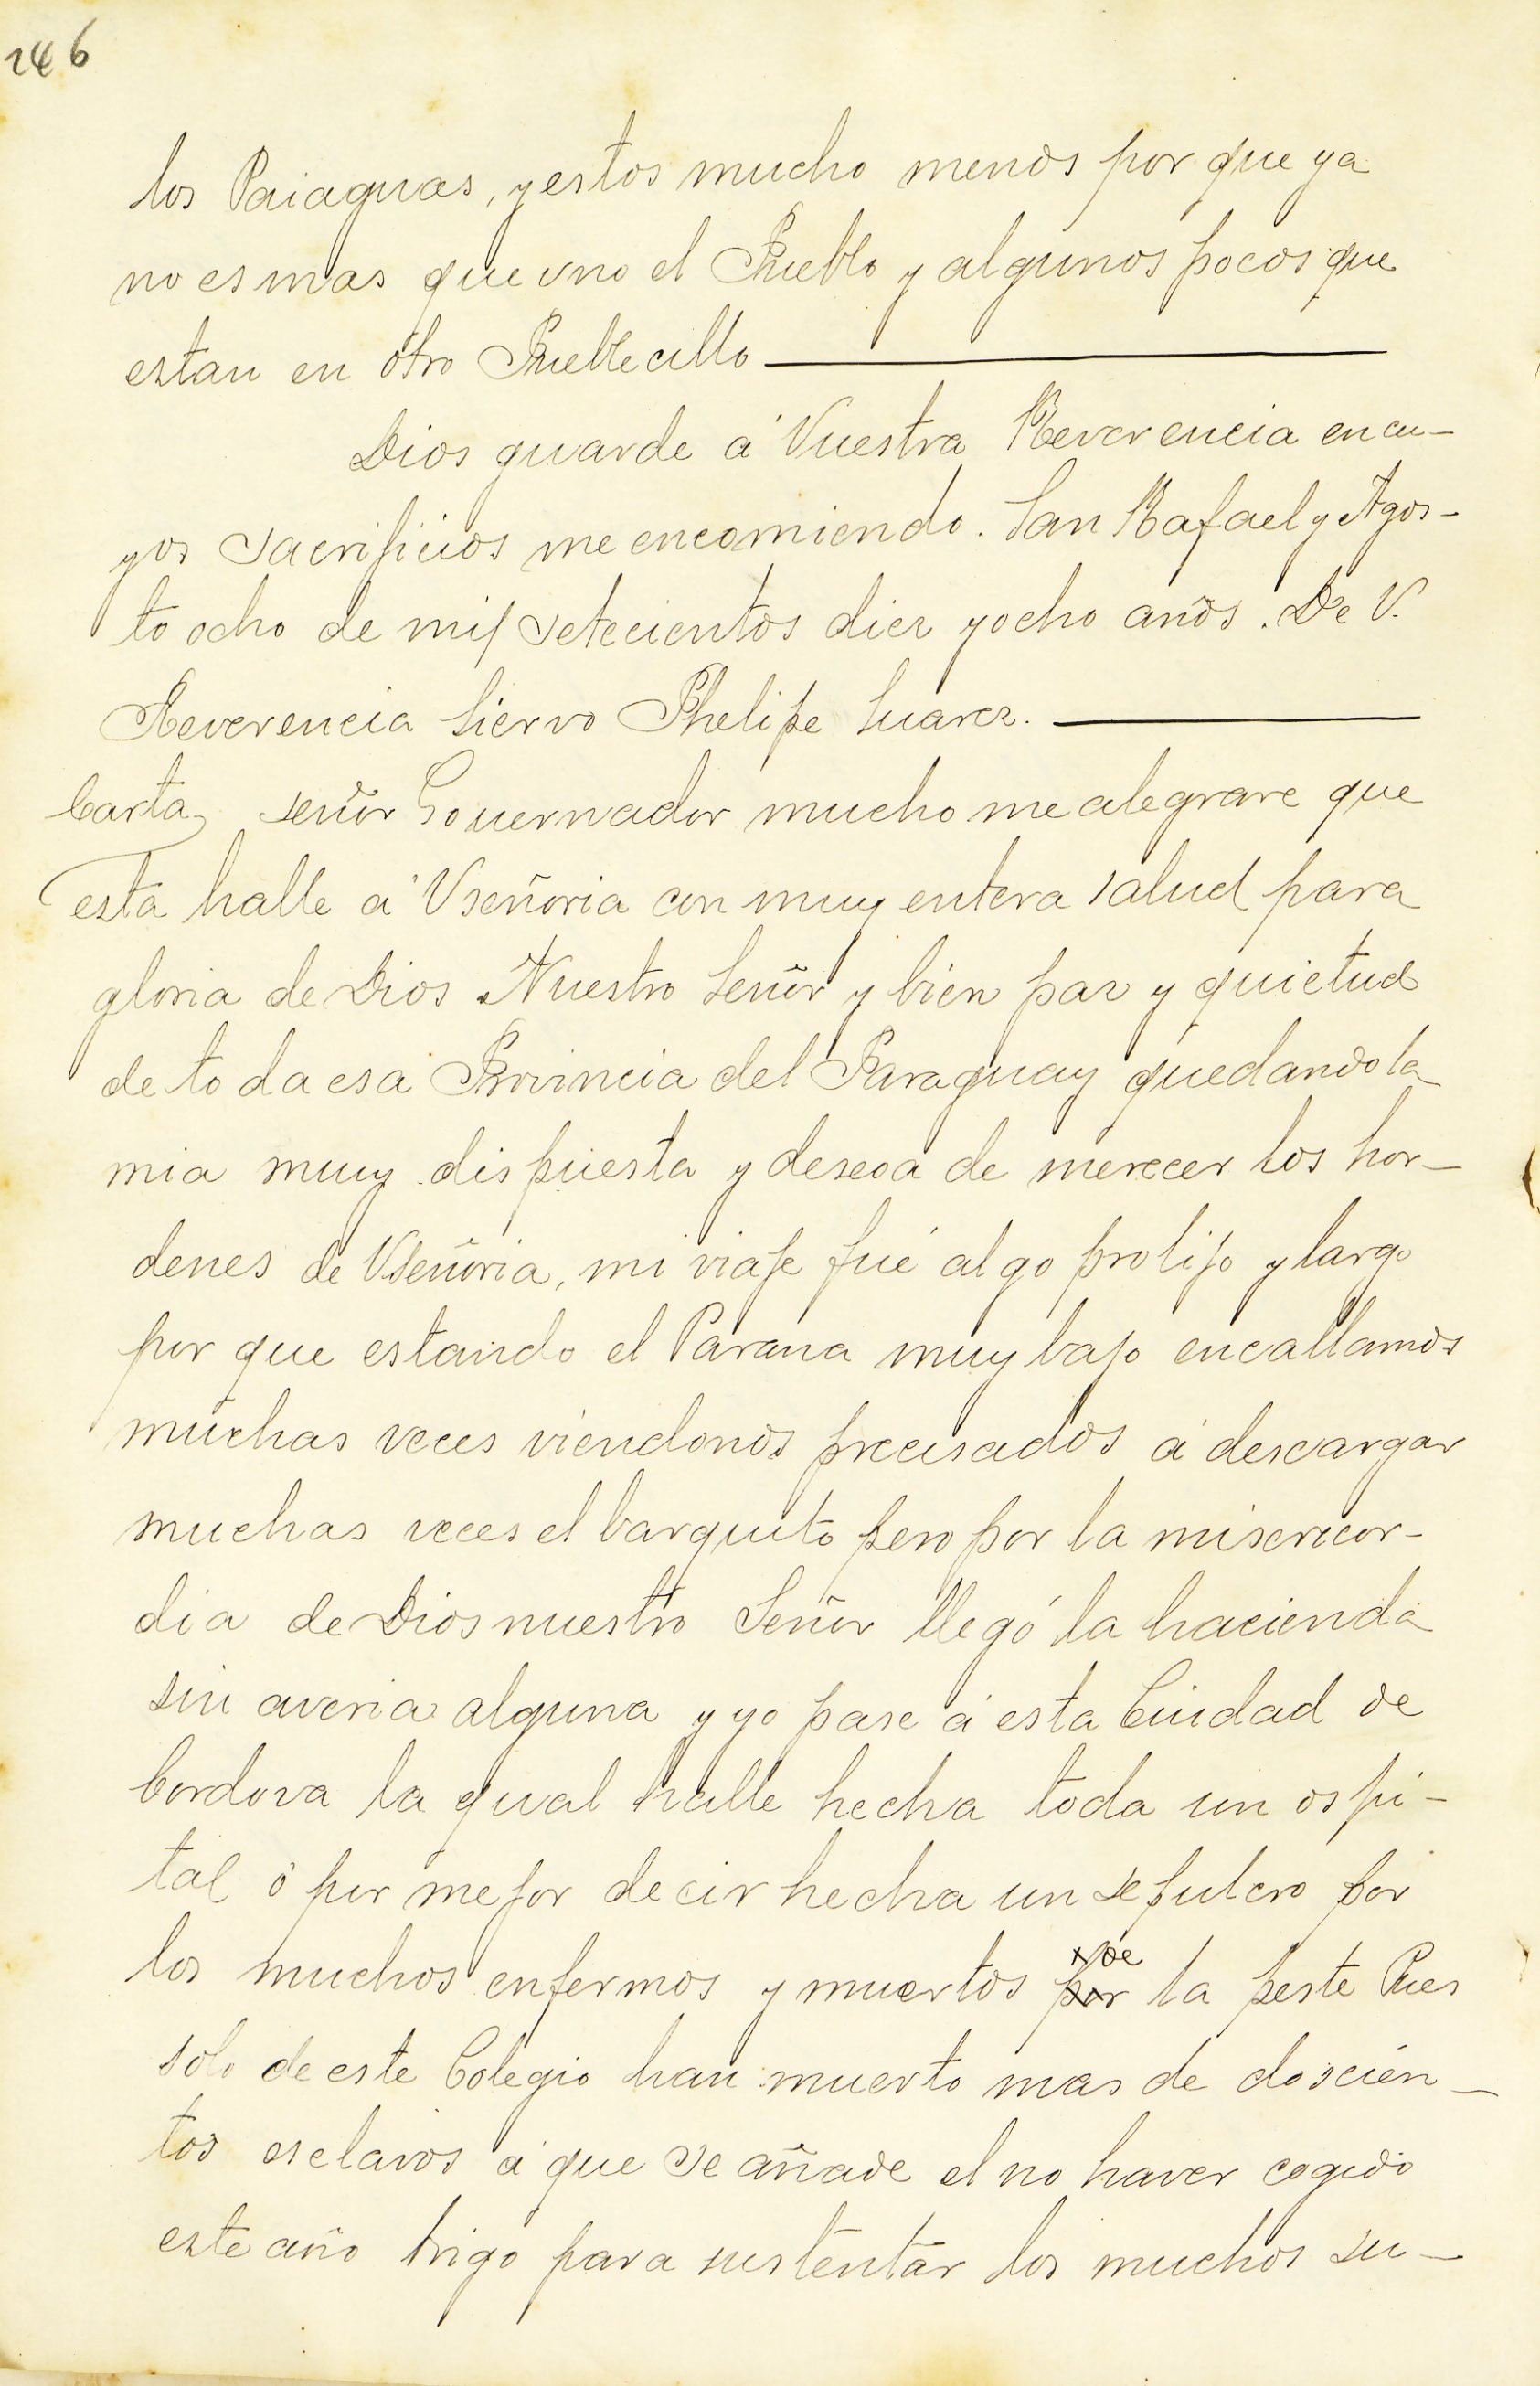 246
los Paiaguas, y estos mucho menos por que ya
no es mas que uno el Pueblo y algunos pocos que
estan en otro Pueblecillo
Dios guarde á Vuestra Reverencia en cu-
yos sacrificios me encomiendo. San Rafael y Agos-
to ocho de mil setecientos diez y ocho años. De V.
Reverencia Siervo Phelipe Suarez.
Carta, señor Governador mucho me alegrare que
esta halle á Vseñoria con muy entera salud para
gloria de Dios Nuestro Señor y bien paz y quietud
de toda esa Provincia del Paraguay quedando la
mia muy dispuesta y deseoa de merecer los hor-
denes de Vseñoria, mi viaje fué algo prolijo y largo
por que estando el Parana muy bajo encallamos
muchas veces viendonos precisados á descargar
muchas veces el barquito pero por la misericor-
dia de Dios nuestro Señor llegó la hacienda
sin averia alguna y yo pase á esta Ciudad de
Cordova la qual halle hecha toda un ospi-
tal ó por mejor decir hecha un sepulcro por
los muchos enfermos y muertos por de la peste Pues
solo de este Colegio han muerto mas de doscien-
tos esclavos á que se añade el no haver cogido
este año trigo para sustentar los muchos su-